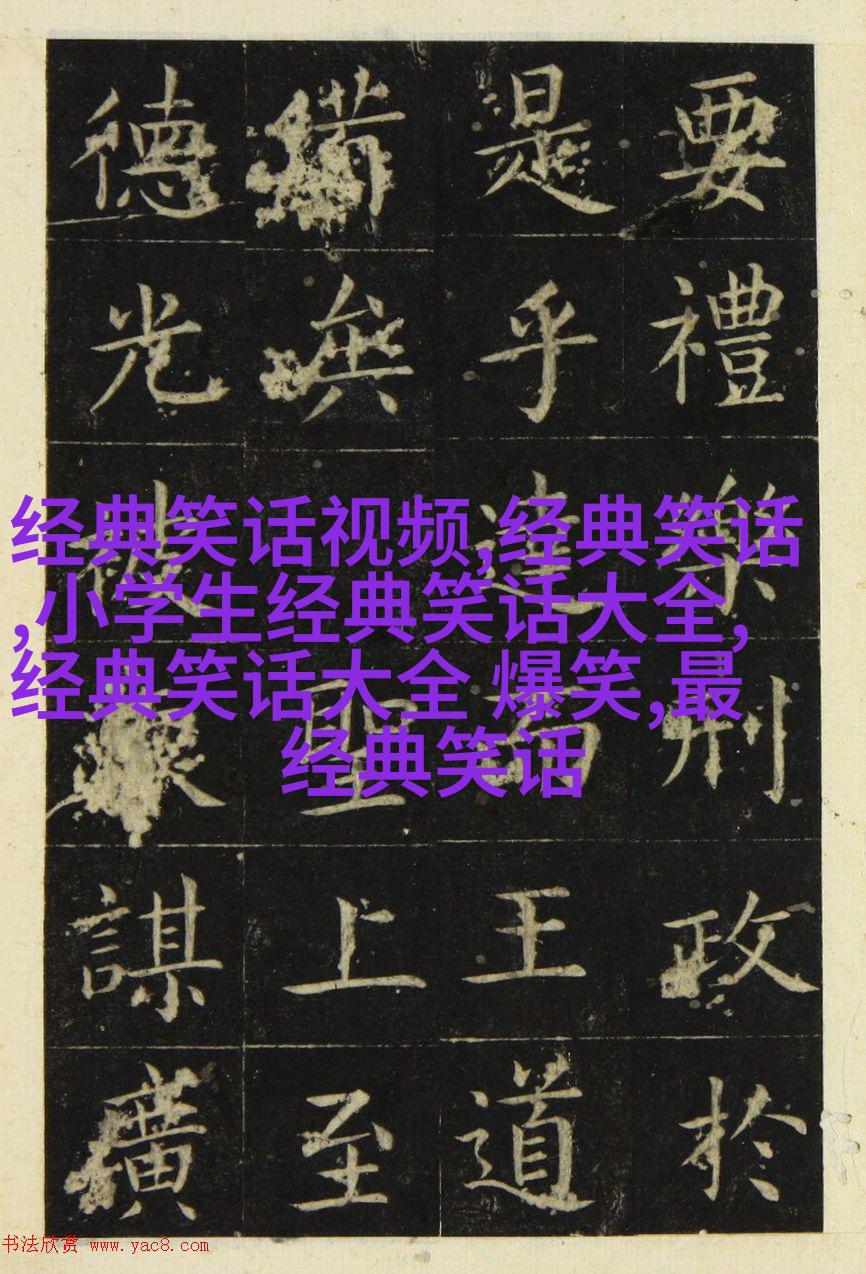 要禮樂刑政於
是乎達而王道
備無聖上至
德光被謀廣
经典笑话视频,经典笑话
,小学生经典笑话大全,
经典笑话大全 爆笑,最
经典笑话
书法欣赏 www.yac8.com